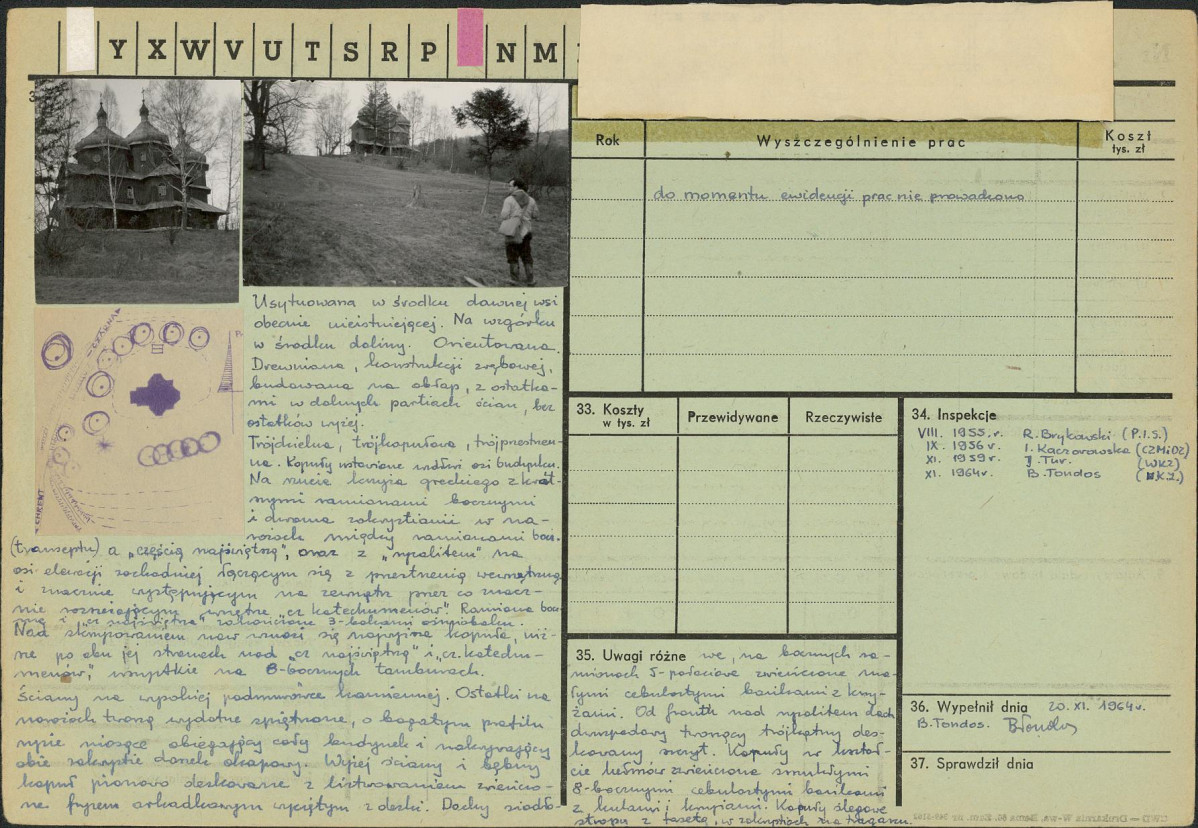 Y X W V U T S R P N M
Usytuowana w środku dawnej wsi
obecnie nieistniejącej. Na wzgórku
w środku doliny. Orientowana.
Drewniana, konstrukcji zrębowej,
budowana na obłap, z ostatka-
mi w dolnych partiach ścian, bez
ostatków wyżej.
Trójdzielna, trójkopułowa, trójprzestrzen-
na. Kopuły ustawione wzdłuż osi budynku.
Na rzucie krzyża greckiego z krót-
szymi ramionami bocznymi
i dwoma zakrystiami w na-
rożach między ramionami bocz.
(transeptu) a „częścią najświętszą", oraz z
osi elewacji zachodniej łączącym się z przestrzenią wewnętrzną
i znacznie występującym na zewnątrz przez co znacz-
nie rozszerzającym wnętrze „cz katechumenów". Ramiona bocz-
ne i „cz najświętsza" zamknięte 3-bokami ośmioboku.
Nad skrzyżowaniem naw wznosi się najwyższa kopuła, niż-
sze po obu jej stronach nad „cz najświętszą" i „cz. katechu-
menów", wszystkie na 8-bocznych tamburach.
Ściany na wspólnej podmurówce kamiennej. Ostatki na
narożach tworzą wydatne spiętrzone, o bogatym profilu
rysie niosące obiegający cały budynek i nakrywający
obie zakrystie daszek okapowy. Wyżej ściany i bębny
kopuł pionowo deskowane z listwowaniem zwieńczo-
ne fryzem arkadkowym wyciętym z deski. Dachy siodło-
CZARNA
Rok
Wyszczególnienie prac
Koszt
tys. zł
do momentu ewidencji prac nie prowadzono
33. Koszty
w tys. zł
Przewidywane
Rzeczywiste
34. Inspekcje
VIII. 1955.r. R. Brykowski (P.I.S.)
IX. 1956 r. I. Kaczorowska (CZMiOZ)
XI. 1959 r. J. Tur. (WKZ)
XI. 1964 r. B. Tondos (W.K.Z.)
35. Uwagi różne we, na bocznych ra-
mionach 5-połaciowe zwieńczone ma-
łymi cebulastymi banikami z krzy-
żami. Od frontu nad dach
dwuspadowy tworzący trójkątny des-
kowany szczyt. Kopuły w kształ-
cie hełmów zwieńczone smukłymi
8-bocznymi cebulastymi banikami
z kulami i krzyżami. Kopuły ślepowe
stropy z fasetą, w zakrystiach na tragarzu.
36. Wypełnił dnia 20. XI. 1964 r.
B. Tondos. BTondos
37. Sprawdził dnia